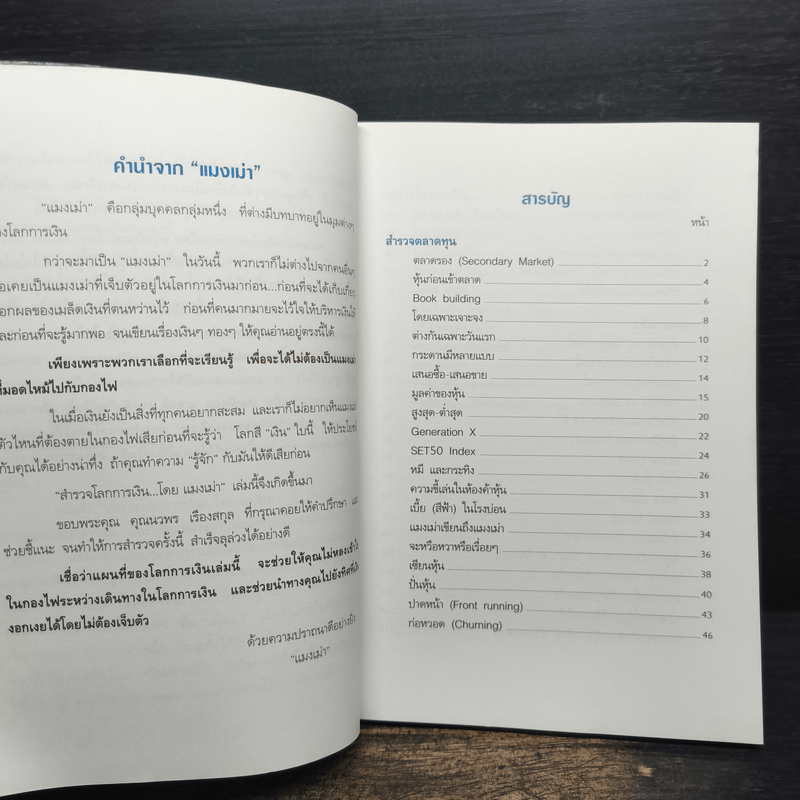 คำนำจาก “แมงเม่า”
“แมงเม่า” คือกลุ่มบุคคลกลุ่มหนึ่ง ที่ต่างมีบทบาทอยู่ในมุมต่างๆ
โลกการเงิน
กว่าจะมาเป็น “แมงเม่า” ในวันนี้ พวกเราก็ไม่ต่างไปจากคนอื่นๆ
เคยเป็นแมงเม่าที่เจ็บตัวอยู่ในโลกการเงินมาก่อน...ก่อนที่จะได้เก็บเกี่ยว
ผลของเมล็ดเงินที่ตนหว่านไว้ ก่อนที่คนมากมายจะไว้ใจให้บริหารเงินให้
และก่อนที่จะรู้มากพอ จนเขียนเรื่องเงินๆ ทองๆ ให้คุณอ่านอยู่ตรงนี้ได้
เพียงเพราะพวกเราเลือกที่จะเรียนรู้ เพื่อจะได้ไม่ต้องเป็นแมงเม่า
ที่มอดไหม้ไปกับกองไฟ
ในเมื่อเงินยังเป็นสิ่งที่ทุกคนอยากสะสม และเราก็ไม่อยากเห็นแมงเม่า
ตัวไหนที่ต้องตายในกองไฟเสียก่อนที่จะรู้ว่า โลกสี “เงิน” ใบนี้ ให้ประโยชน์
กับคุณได้อย่างน่าทึ่ง ถ้าคุณทำความ “รู้จัก” กับมันให้ดีเสียก่อน
“สำรวจโลกการเงิน...โดย แมงเม่า” เล่มนี้จึงเกิดขึ้นมา
ขอบพระคุณ คุณนวพร เรืองสกุล ที่กรุณาคอยให้คำปรึกษา และ
ช่วยชี้แนะ จนทำให้การสำรวจครั้งนี้ สำเร็จลุล่วงได้อย่างดี
เชื่อว่าแผนที่ของโลกการเงินเล่มนี้ จะช่วยให้คุณไม่หลงเข้าไป
ในกองไฟระหว่างเดินทางในโลกการเงิน และช่วยนำทางคุณไปยังทิศที่เงิน
งอกเงยได้โดยไม่ต้องเจ็บตัว
ด้วยความปรารถนาดีอย่างยิ่ง
“แมงเม่า”
สารบัญ
หน้า
สำรวจตลาดทุน
ตลาดรอง (Secondary Market) 2
หุ้นก่อนเข้าตลาด 4
Book building 6
โดยเฉพาะเจาะจง 8
ต่างกันเฉพาะวันแรก 10
กระดานมีหลายแบบ 12
เสนอซื้อ-เสนอขาย 14
มูลค่าของหุ้น 15
สูงสุด-ต่ำสุด 20
Generation X 22
SET50 Index 24
หมี และกระทิง 26
ความขี้เล่นในห้องค้าหุ้น 31
เบี้ย (สีฟ้า) ในโรงบ่อน 33
แมงเม่าเขียนถึงแมงเม่า 34
จะหวือหวาหรือเรื่อยๆ 36
เซียนหุ้น 38
ปั่นหุ้น 40
ปาดหน้า (Front running) 43
ก่อหวอด (Churning) 46